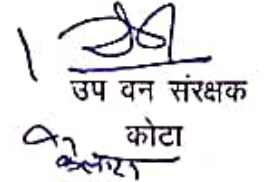 उप वन संरक्षक
कोटा